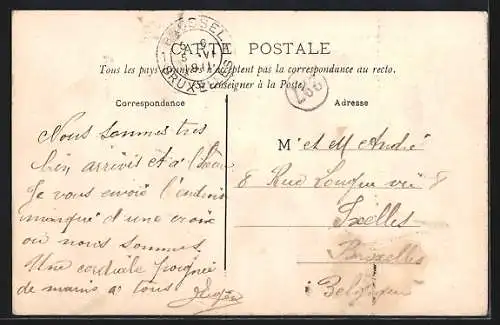 CARTE POSTALE
Tous les pays étrangers n'acceptent pas la correspondance au recto.
(Se renseigner à la Poste)
Correspondance
Adresse
BRUXELLES
Nous sommes tres
bien arrivés et à l'heure
Je vous envoie l'endroit
marqué d'une croix
où nous sommes.
Une cordiale poignée
de mains a tous
M et M André
8 Rue Longue vie 8
Ixelles
Bruxelles
Belgique